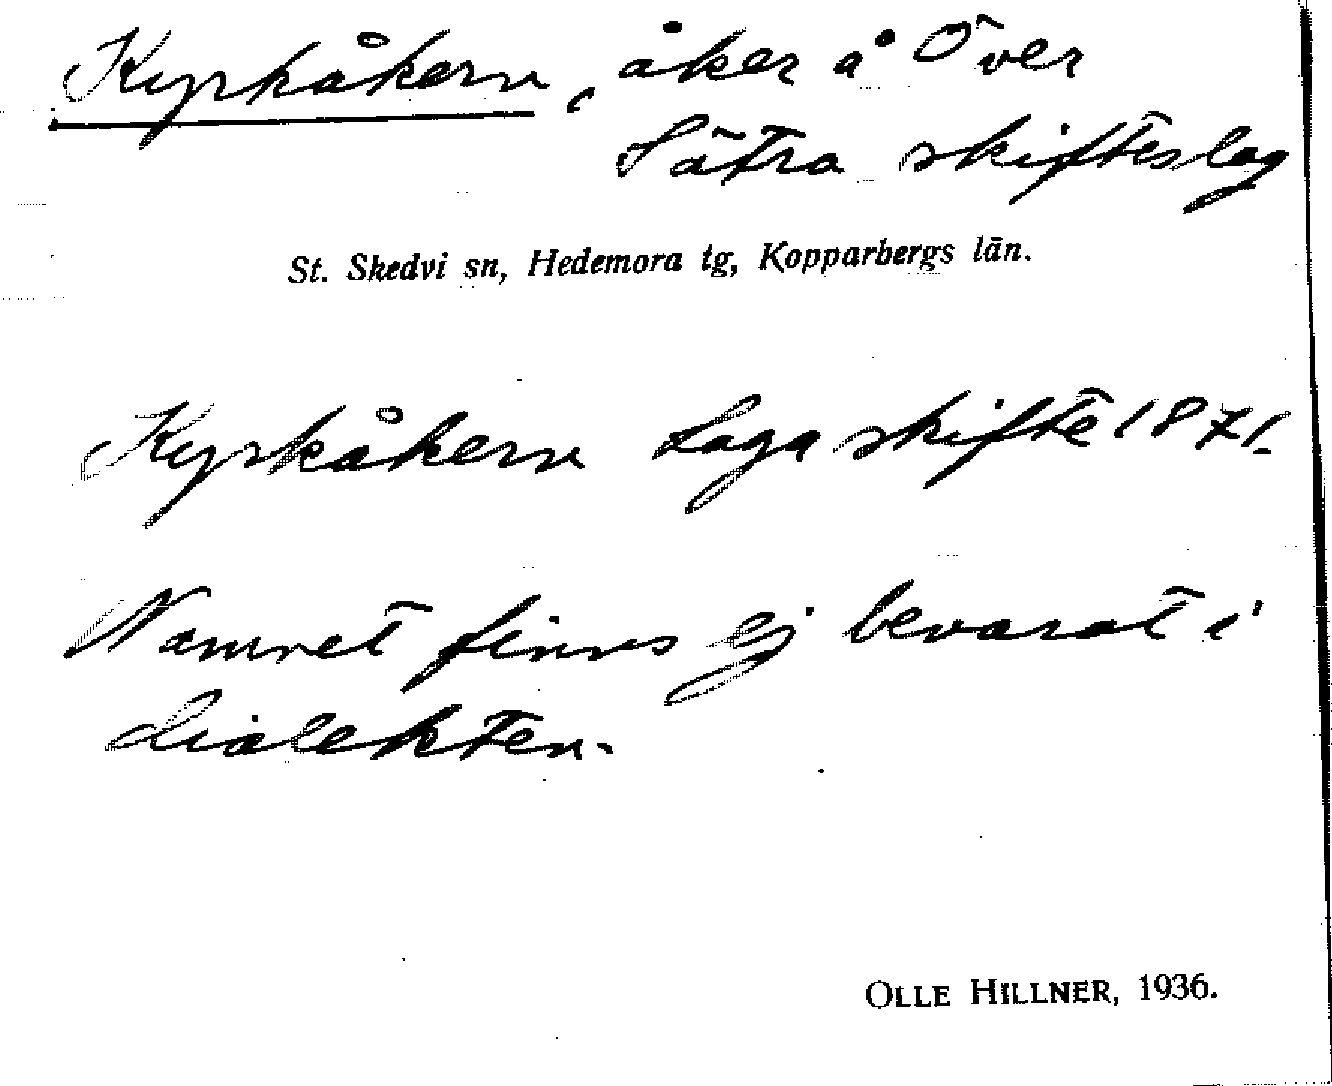 Kyrkåkern, åker å Över
Sätra skifteslag
St. Skedvi sn, Hedemora tg, Kopparbergs län.
Kyrkåkern Laga skifte 1871.
Namnet finns ej bevarat i
dialekten.
OLLE HILLNER, 1936.